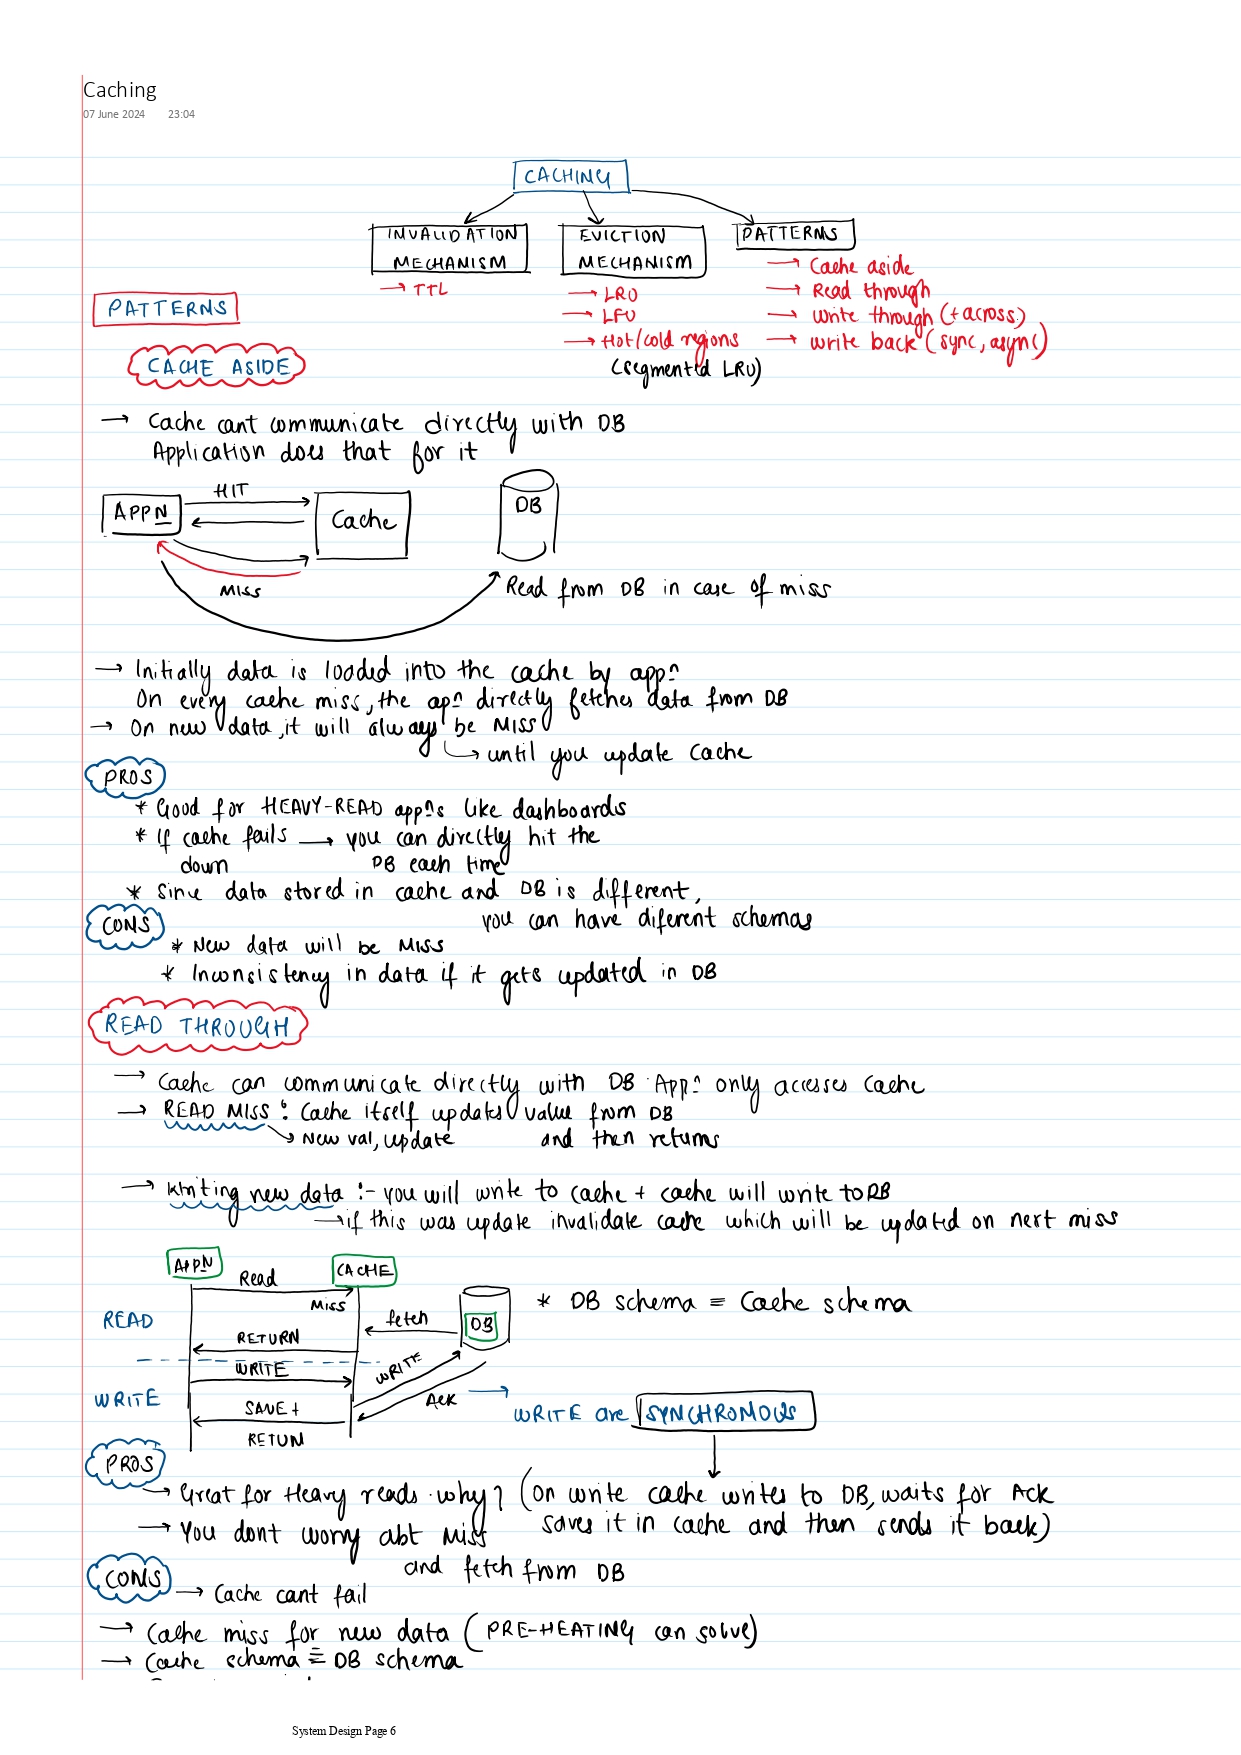 Caching
07 June 2024 23:04
CACHING
INVALIDATION MECHANISM
→ TTL
EVICTION MECHANISM
→ LRU
→ LFU
→ Hot/cold regions
(segmented LRU)
PATTERNS
→ Cache aside
→ Read through
→ Write through (+ across)
→ Write back (sync, async)
PATTERNS
CACHE ASIDE
→ Cache cant communicate directly with DB
Application does that for it
APPN
HIT
Cache
DB
MISS
Read from DB in case of miss
→ Initially data is loaded into the cache by appⁿ
On every cache miss, the apⁿ directly fetches data from DB
→ On new data, it will always be MISS
↳ until you update cache
PROS
* Good for HEAVY-READ appⁿs like dashboards
* If cache fails → you can directly hit the
down DB each time
* Since data stored in cache and DB is different,
you can have diferent schemas
CONS
* New data will be MISS
* Inconsistency in data if it gets updated in DB
READ THROUGH
→ Cache can communicate directly with DB. Appⁿ only accesses cache
→ READ MISS : Cache itself updates value from DB
→ New val, update and then returns
→ Writing new data :- you will write to cache + cache will write to DB
→ if this was update invalidate cache which will be updated on next miss
APPN
CACHE
Read
MISS
READ
fetch
DB
* DB schema ≡ Cache schema
RETURN
WRITE
WRITE
WRITE
SAVE +
RETUN
Ack →
WRITE are SYNCHRONOUS
PROS
→ Great for Heavy reads. why? (On write cache writes to DB, waits for Ack
saves it in cache and then sends it back)
→ You dont worry abt Miss
and fetch from DB
CONS
→ Cache cant fail
→ Cache miss for new data (PRE-HEATING can solve)
→ Cache schema ≡ DB schema
System Design Page 6